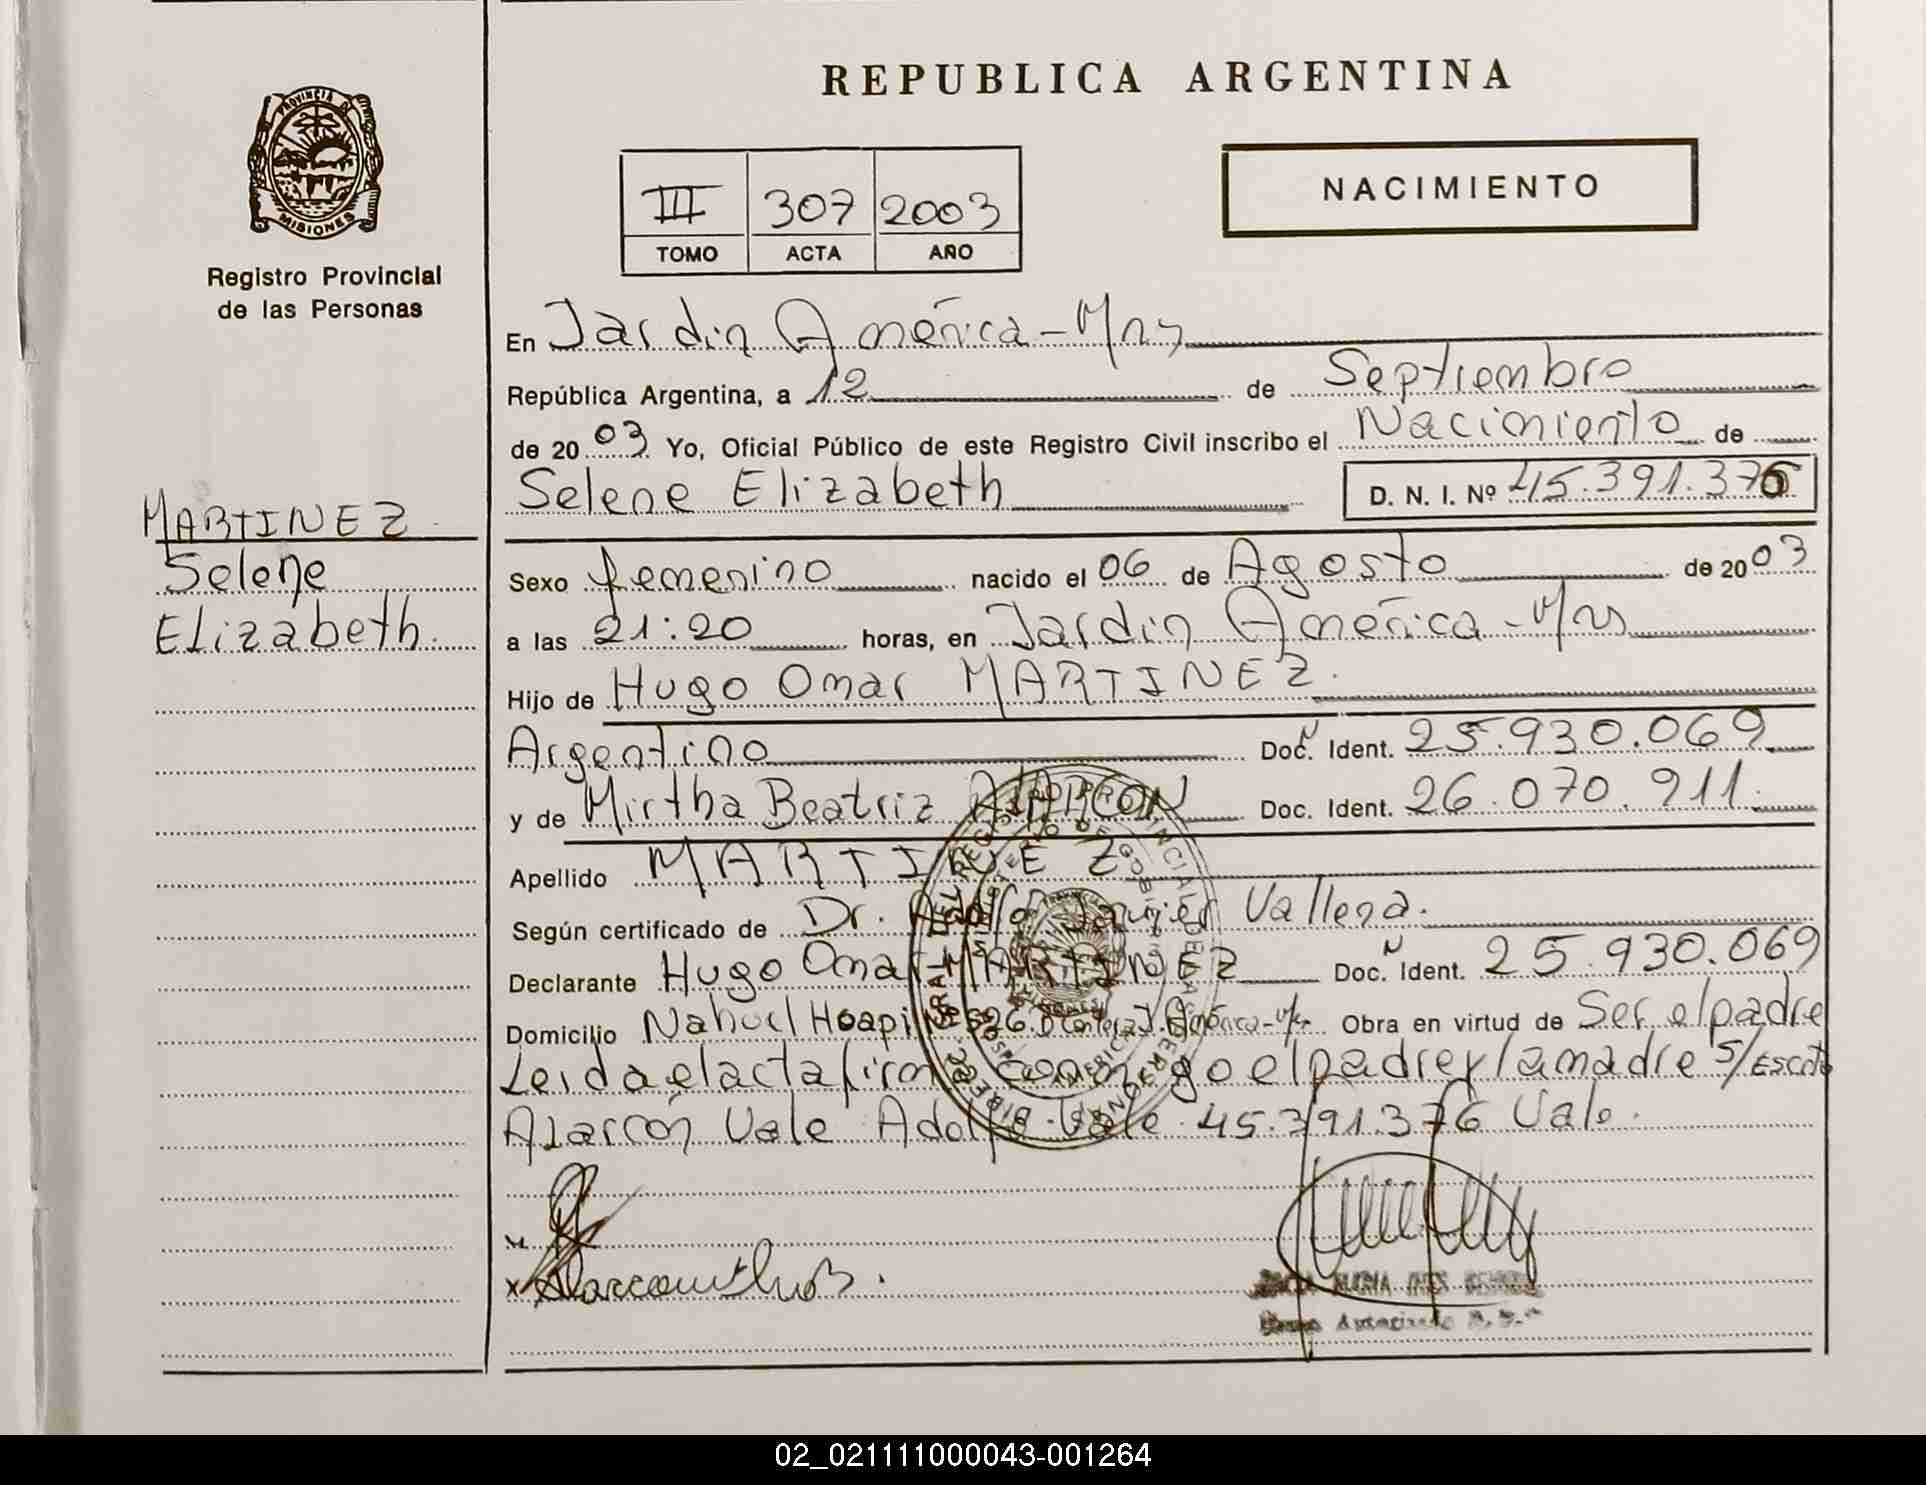 REPUBLICA ARGENTINA
PROVINCIA DE
MISIONES
Registro Provincial
de las Personas
III 307 2003
TOMO ACTA AÑO
NACIMIENTO
En Jardin América - Mns
República Argentina, a 12 de Septiembre
de 2003 Yo, Oficial Público de este Registro Civil inscribo el Nacimiento de
Selene Elizabeth D. N. I. Nº 45.391.376
MARTINEZ
Selene
Elizabeth.
Sexo femenino nacido el 06 de Agosto de 2003
a las 21:20 horas, en Jardin América - Mns
Hijo de Hugo Omar MARTINEZ.
Argentino Doc. Ident. 25.930.069
y de Mirtha Beatriz ALARCON Doc. Ident. 26.070.911.
Apellido MARTINEZ
Según certificado de Dr. Javier Vallena.
Declarante Hugo Omar MARTINEZ Doc. Ident. 25.930.069
Domicilio Nahuel Hoapi América - Obra en virtud de Ser el padre
Leida el acta firma conmigo el padre y la madre s/Escrito
Alarcón Vale Adolfo Vale 45.391.376 Vale.
02_021111000043-001264